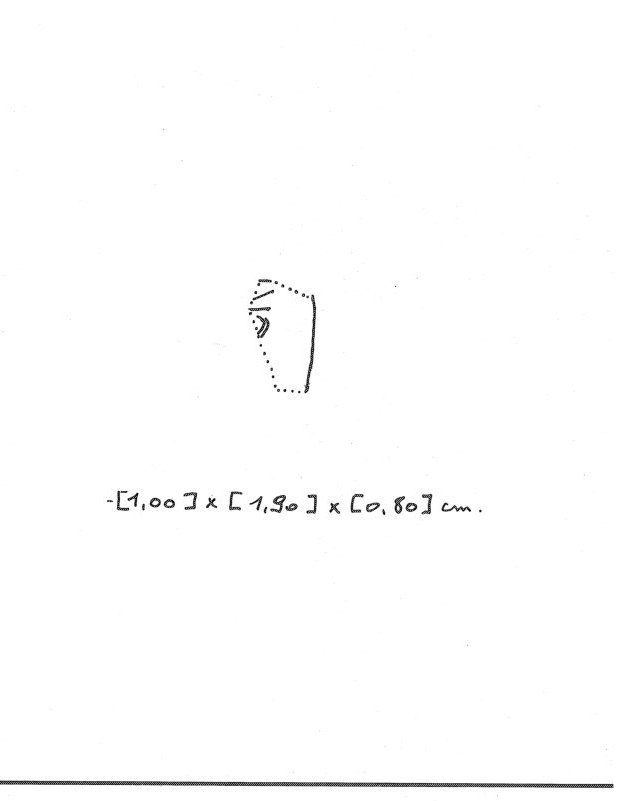 -[1,00] x [1,90] x [0,80] cm.